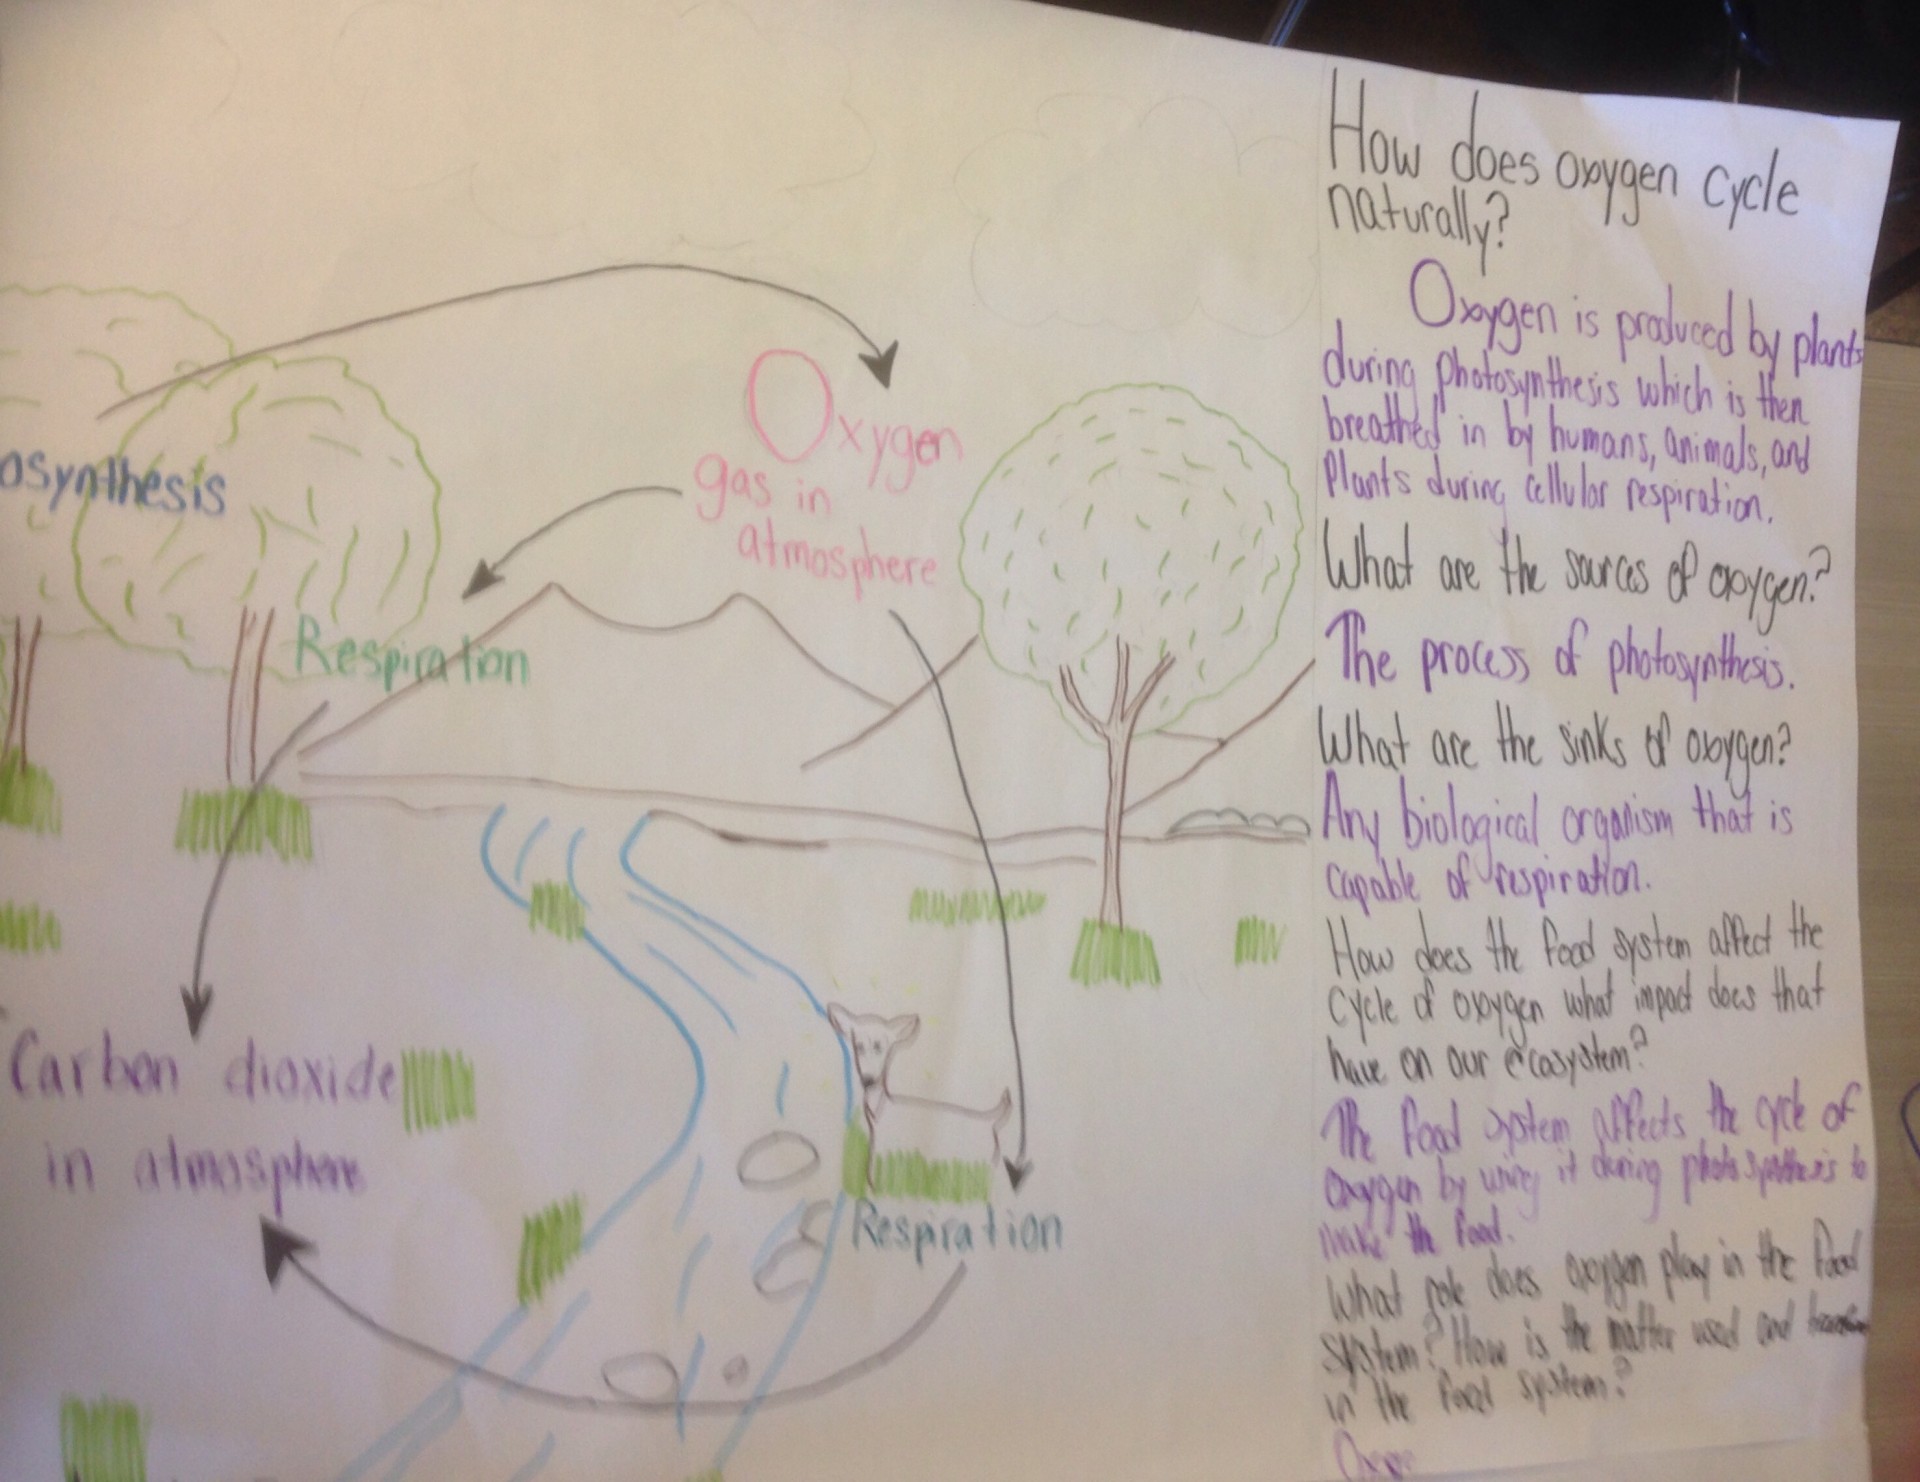 osynthesis
Oxygen
gas in
atmosphere
Respiration
Carbon dioxide
in atmosphere
Respiration
How does oxygen cycle
naturally?
Oxygen is produced by plants
during photosynthesis which is then
breathed in by humans, animals, and
Plants during cellular respiration.
What are the sources of oxygen?
The process of photosynthesis.
What are the sinks of oxygen?
Any biological organism that is
capable of respiration.
How does the food system affect the
cycle of oxygen what impact does that
have on our ecosystem?
The food system affects the cycle of
oxygen by using it during photosynthesis to
make the food.
What role does oxygen play in the food
system? How is the matter used and
in the food system?